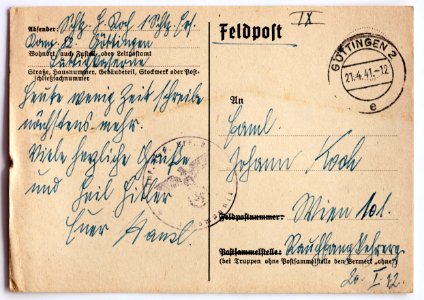 Absender: Schz. H. Koch 1 Schtz. Ers.
Komp. 82 Göttingen
Wohnort, auch Zustell- oder Leitpostamt
Straße, Hausnummer, Gebäudeteil, Stockwerk oder Post-
schließfachnummer
Heute wenig Zeit schreibe
nächstens mehr.
Viele herzliche Grüße
und Heil Hitler
Euer Hansl.
IX
Feldpost
GÖTTINGEN 2
21.4.41.-12
e
An
Faml.
Johann Koch
Feldpostnummer:
Wien 101.
Postsammelstelle: Rauchfangkehrerg.
(bei Truppen ohne Postsammelstelle den Vermerk „ohne“)
20. I. 12.